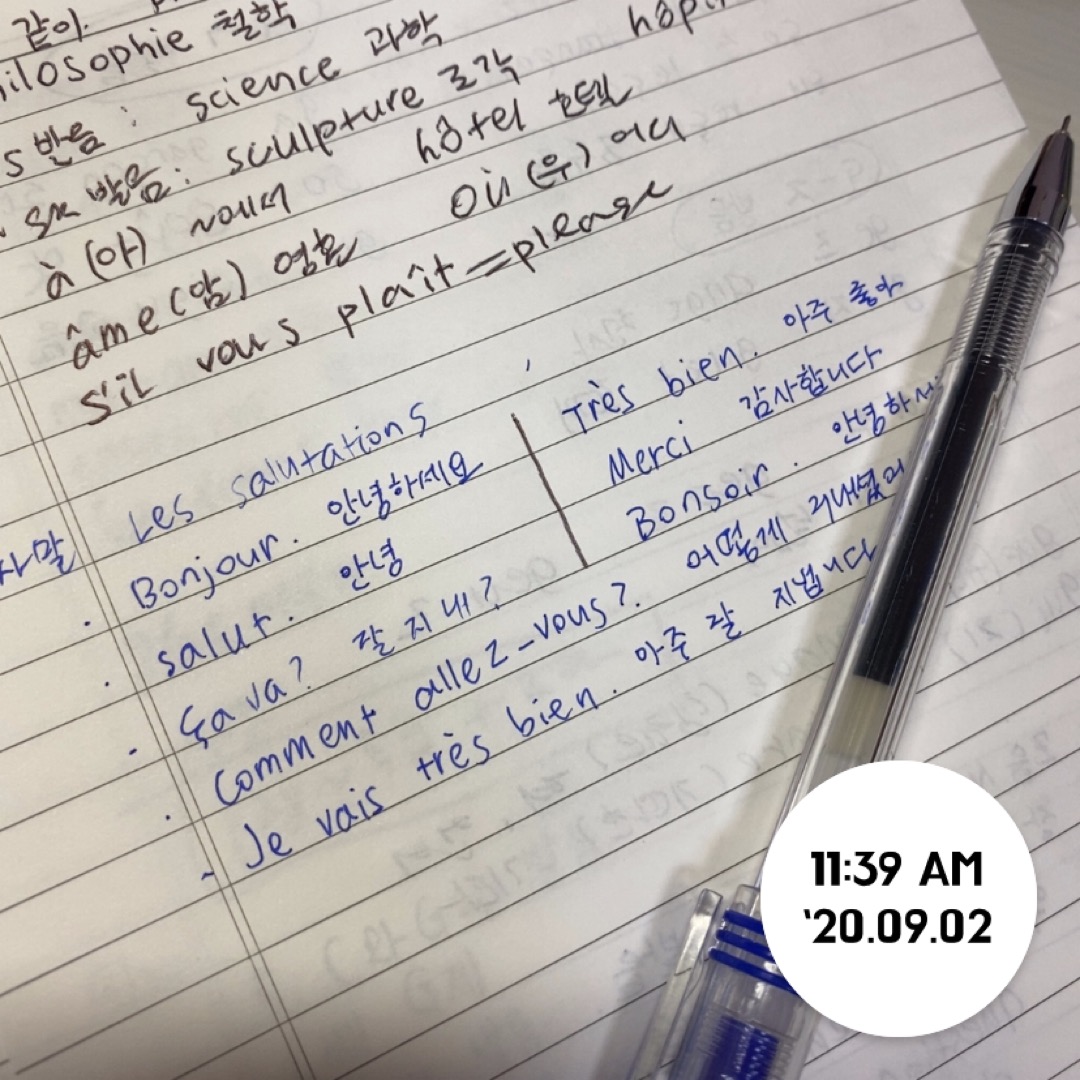 같이.
philosophie 철학
s 발음 : science 과학
sk 발음: sculpture 조각
à (아) ~에서 hôtel 호텔
âme (암) 영혼 où (우) 어디
s'il vous plaît = please
Les salutations
Bonjour. 안녕하세요
salut. 안녕
ça va? 잘 지내?
Très bien. 아주 좋아
Merci 감사합니다
Bonsoir. 안녕하세
Comment allez-vous? 어떻게 지내셨어
Je vais très bien. 아주 잘 지냅니다
11:39 AM
'20.09.02